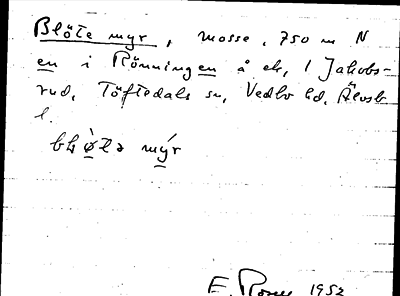 Blöte myr, mosse, 750 m N
en i Rönningen å ek, 1 Jakobs-
rud, Töftedals sn, Vedbo hd, Älvsb
l.
myr
E. 1952